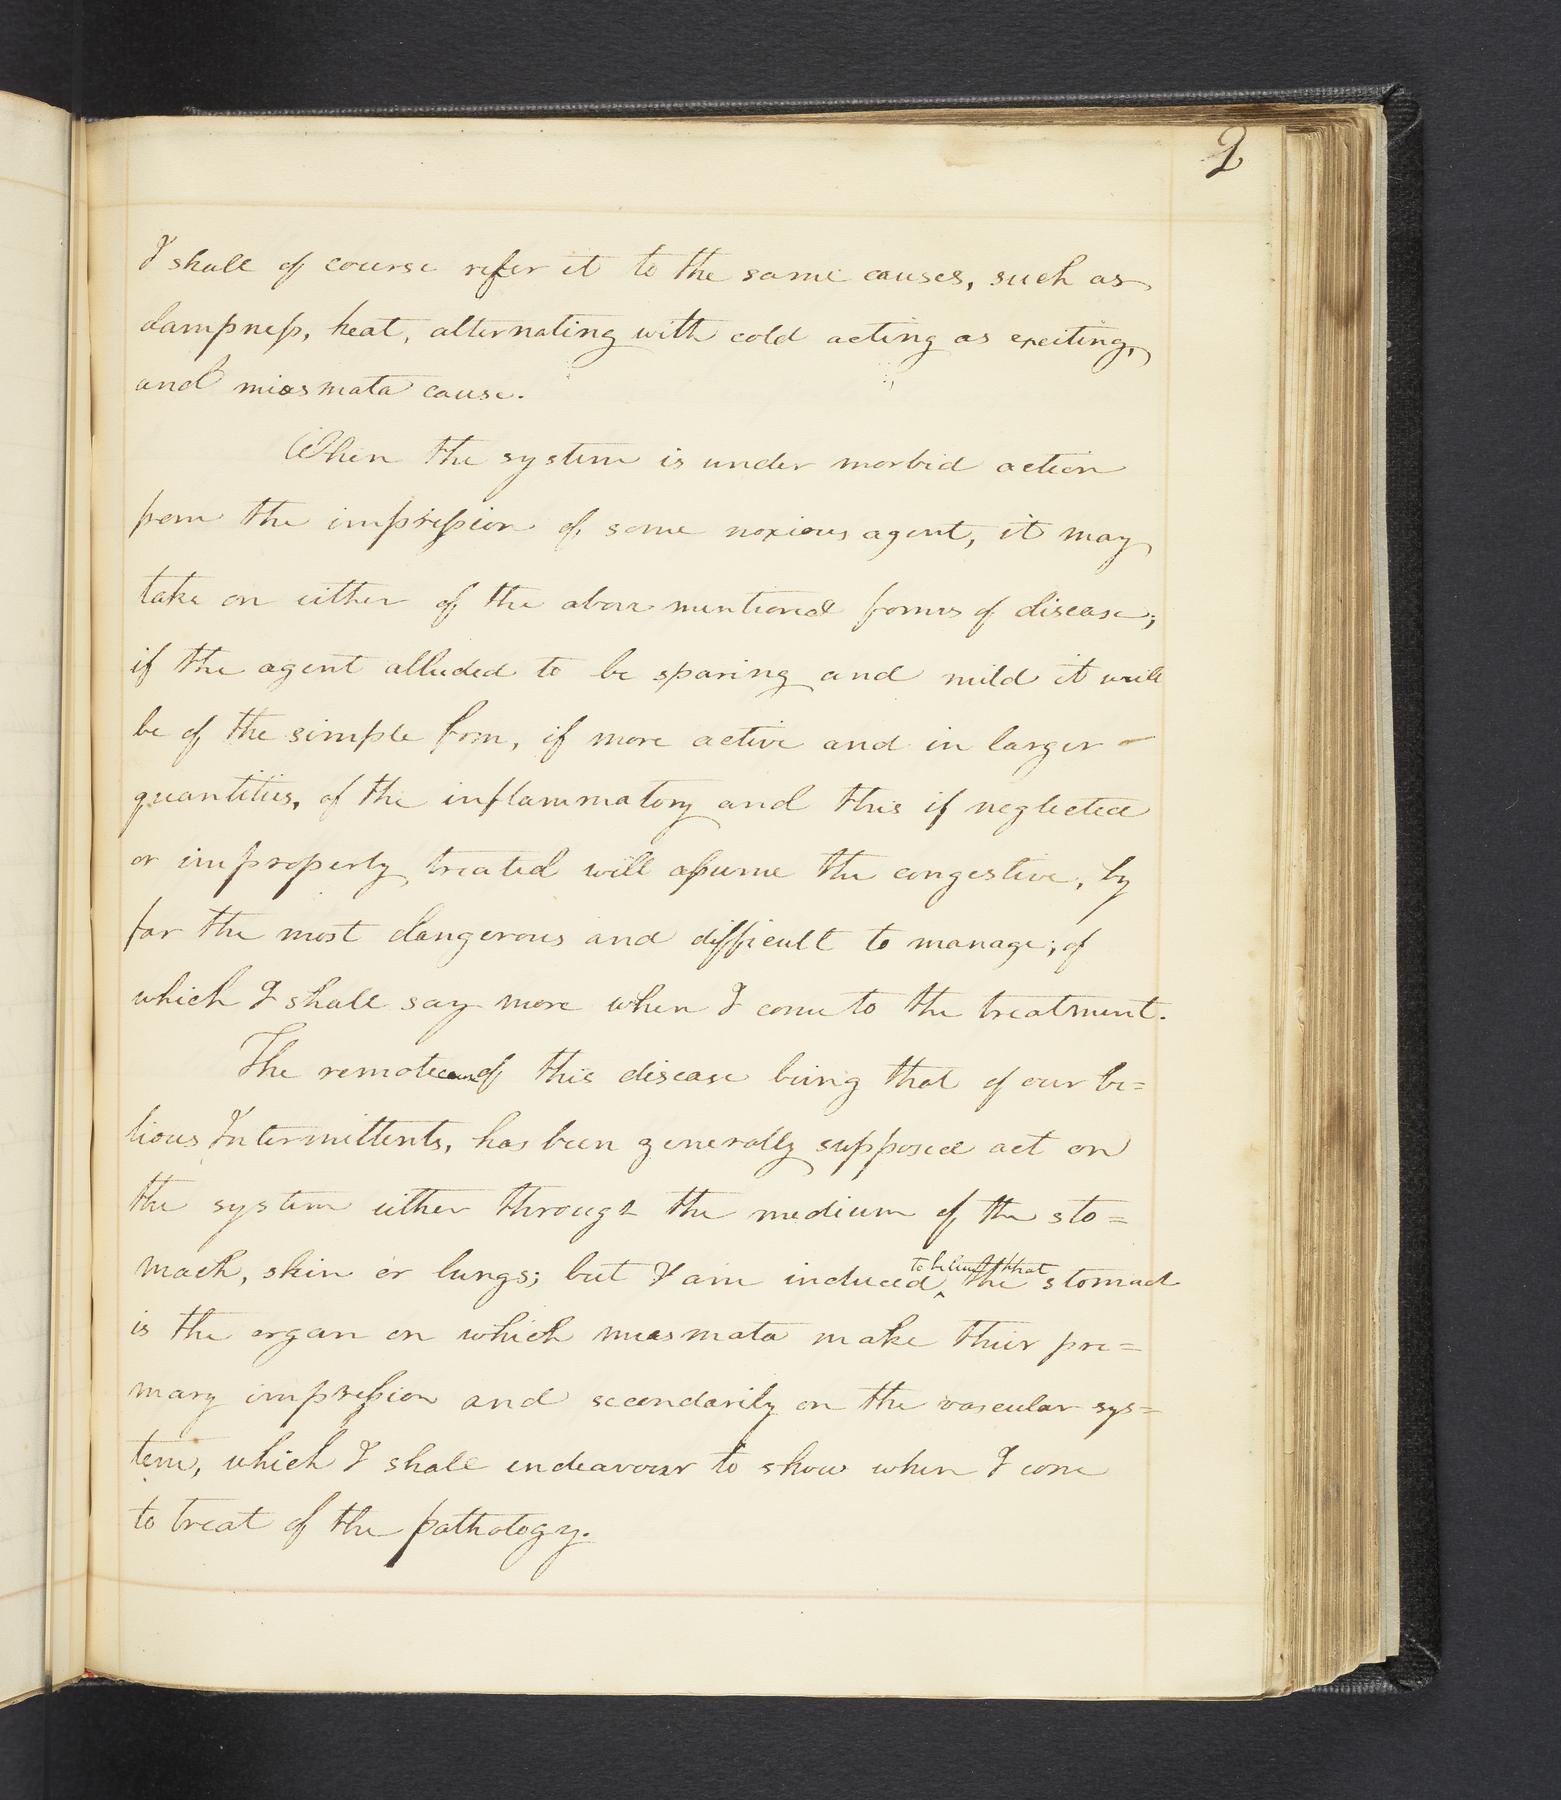 2
I shall of course refer it to the same causes, such as
dampness, heat, alternating with cold acting as exciting,
and miasmata cause.
When the system is under morbid action
from the impression of some noxious agent, it may
take on either of the above mentioned forms of disease;
if the agent alluded to be sparing and mild it will
be of the simple form, if more active and in larger –
quantities, of the inflammatory and this if neglected
or improperly treated will assume the congestive, by
far the most dangerous and difficult to manage; of
which I shall say more when I come to the treatment.
The remote of this disease being that of our bi=
lious Intermittents, has been generally supposed act on
the system either through the medium of the sto=
mach, skin or lungs; but I am induced to believe that the stomach
is the organ on which miasmata make their pri=
mary impression and secondarily on the vascular sys=
tem, which I shall endeavour to show when I come
to treat of the pathology.